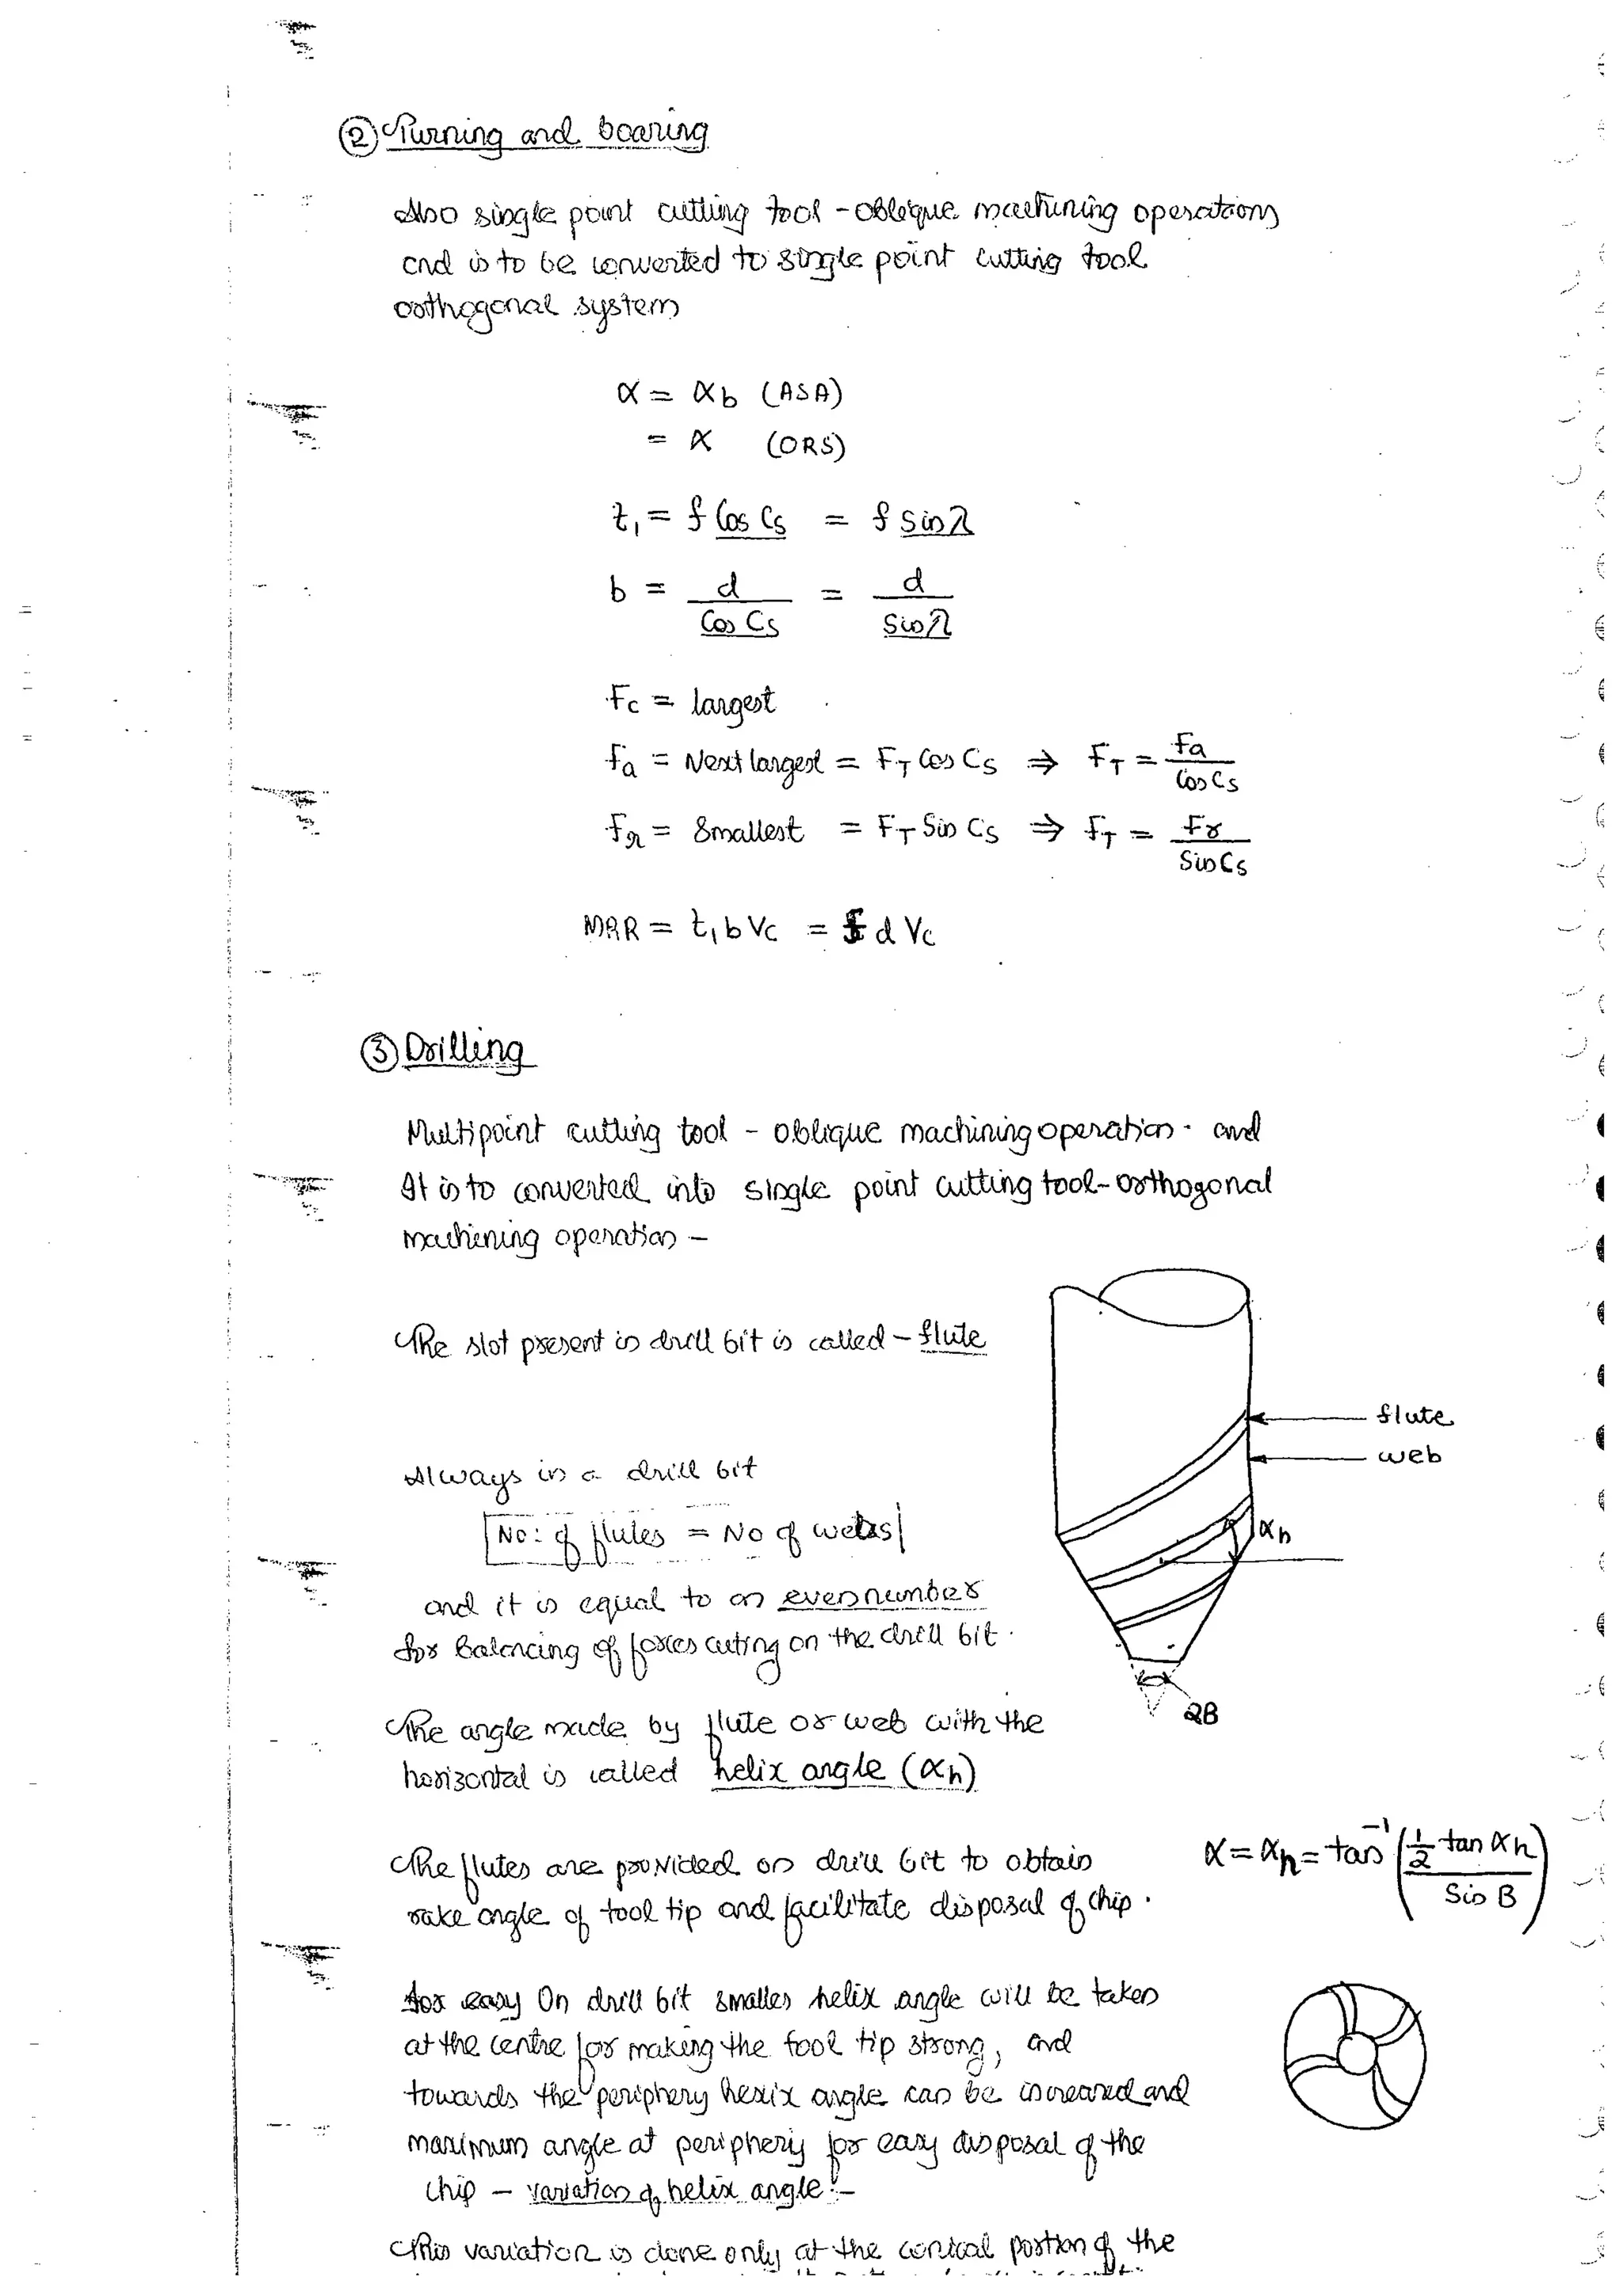 ② Turning and boaring
Also single point cutting tool - oblique machining operations
and is to be converted to single point cutting tool
orthogonal system
α = αb (ASA)
= α (ORS)
t₁ = f Cos Cs = f sin λ
b = d/Cos Cs = d/Sin λ
Fc = largest
Fa = Next largest = FT Cos Cs ⇒ FT = Fa/Cos Cs
Fr = Smallest = FT Sin Cs ⇒ FT = Fr/Sin Cs
MRR = t₁ b Vc = f d Vc
③ Drilling
Multipoint cutting tool - oblique machining operation. and
It is to converted into single point cutting tool - orthogonal
machining operation –
The slot present in drill bit is called - flute
flute
web
Always in a drill bit
No: of flutes = No of webs
αh
and it is equal to an even number
for balancing of forces acting on the drill bit.
2β
The angle made by flute or web with the
horizontal is called helix angle (αh)
The flutes are provided on drill bit to obtain
rake angle of tool tip and facilitate disposal of chip.
α = αh = tan⁻¹ (½ tan αh / Sin β)
for easy On drill bit smaller helix angle will be taken
at the centre for making the tool tip strong, and
towards the periphery helix angle can be increased and
maximum angle at periphery for easy disposal of the
chip – variation of helix angle :–
This variation is done only at the conical portion of the